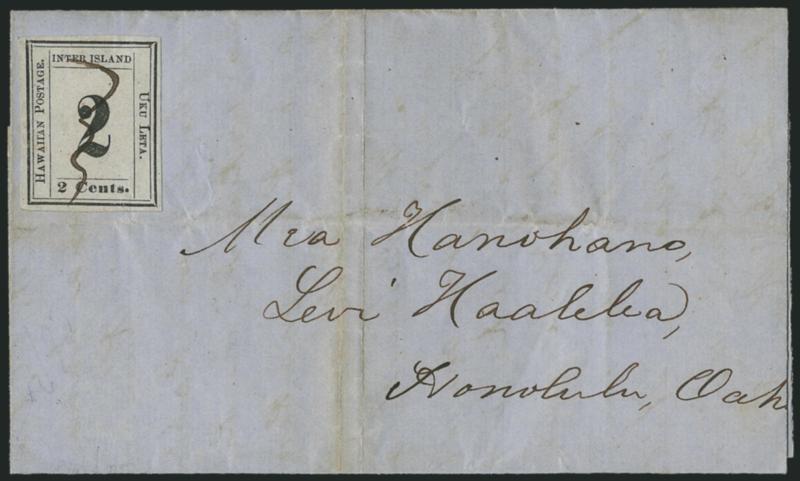 INTER ISLAND
HAWAIIAN POSTAGE.
2
UKU LETA.
2 Cents.
Mea Hanohano,
Levi Haalelea,
Honolulu, Oah